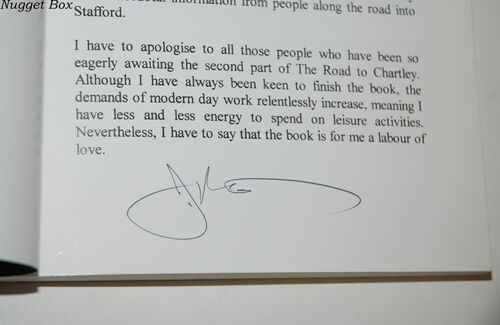 Nugget Box
information from people along the road into
Stafford.
I have to apologise to all those people who have been so
eagerly awaiting the second part of The Road to Chartley.
Although I have always been keen to finish the book, the
demands of modern day work relentlessly increase, meaning I
have less and less energy to spend on leisure activities.
Nevertheless, I have to say that the book is for me a labour of
love.